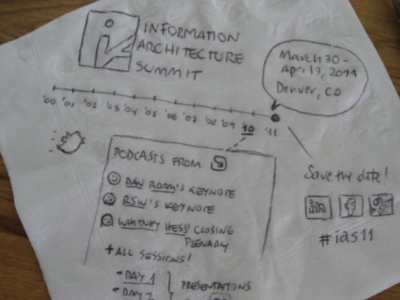 INFORMATION
ARCHITECTURE
SUMMIT
March 30 -
April 3, 2011
Denver, CO
'00 '01 '02 '03 '04 '05 '06 '07 '08 '09 '10 '11
PODCASTS FROM
DAN ROAM'S KEYNOTE
RSW'S KEYNOTE
WHITNEY HESS' CLOSING
PLENARY
+ ALL SESSIONS!
• DAY 1
• DAY 2
PRESENTATIONS
Save the date!
in f
#ias11